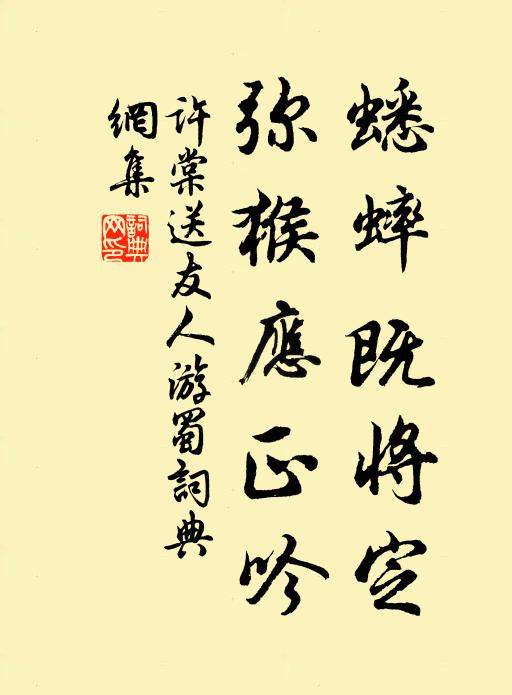 蟋蟀既將定
弥猴應正吟
許棠送友人游蜀詞典
網集
詞典
网印